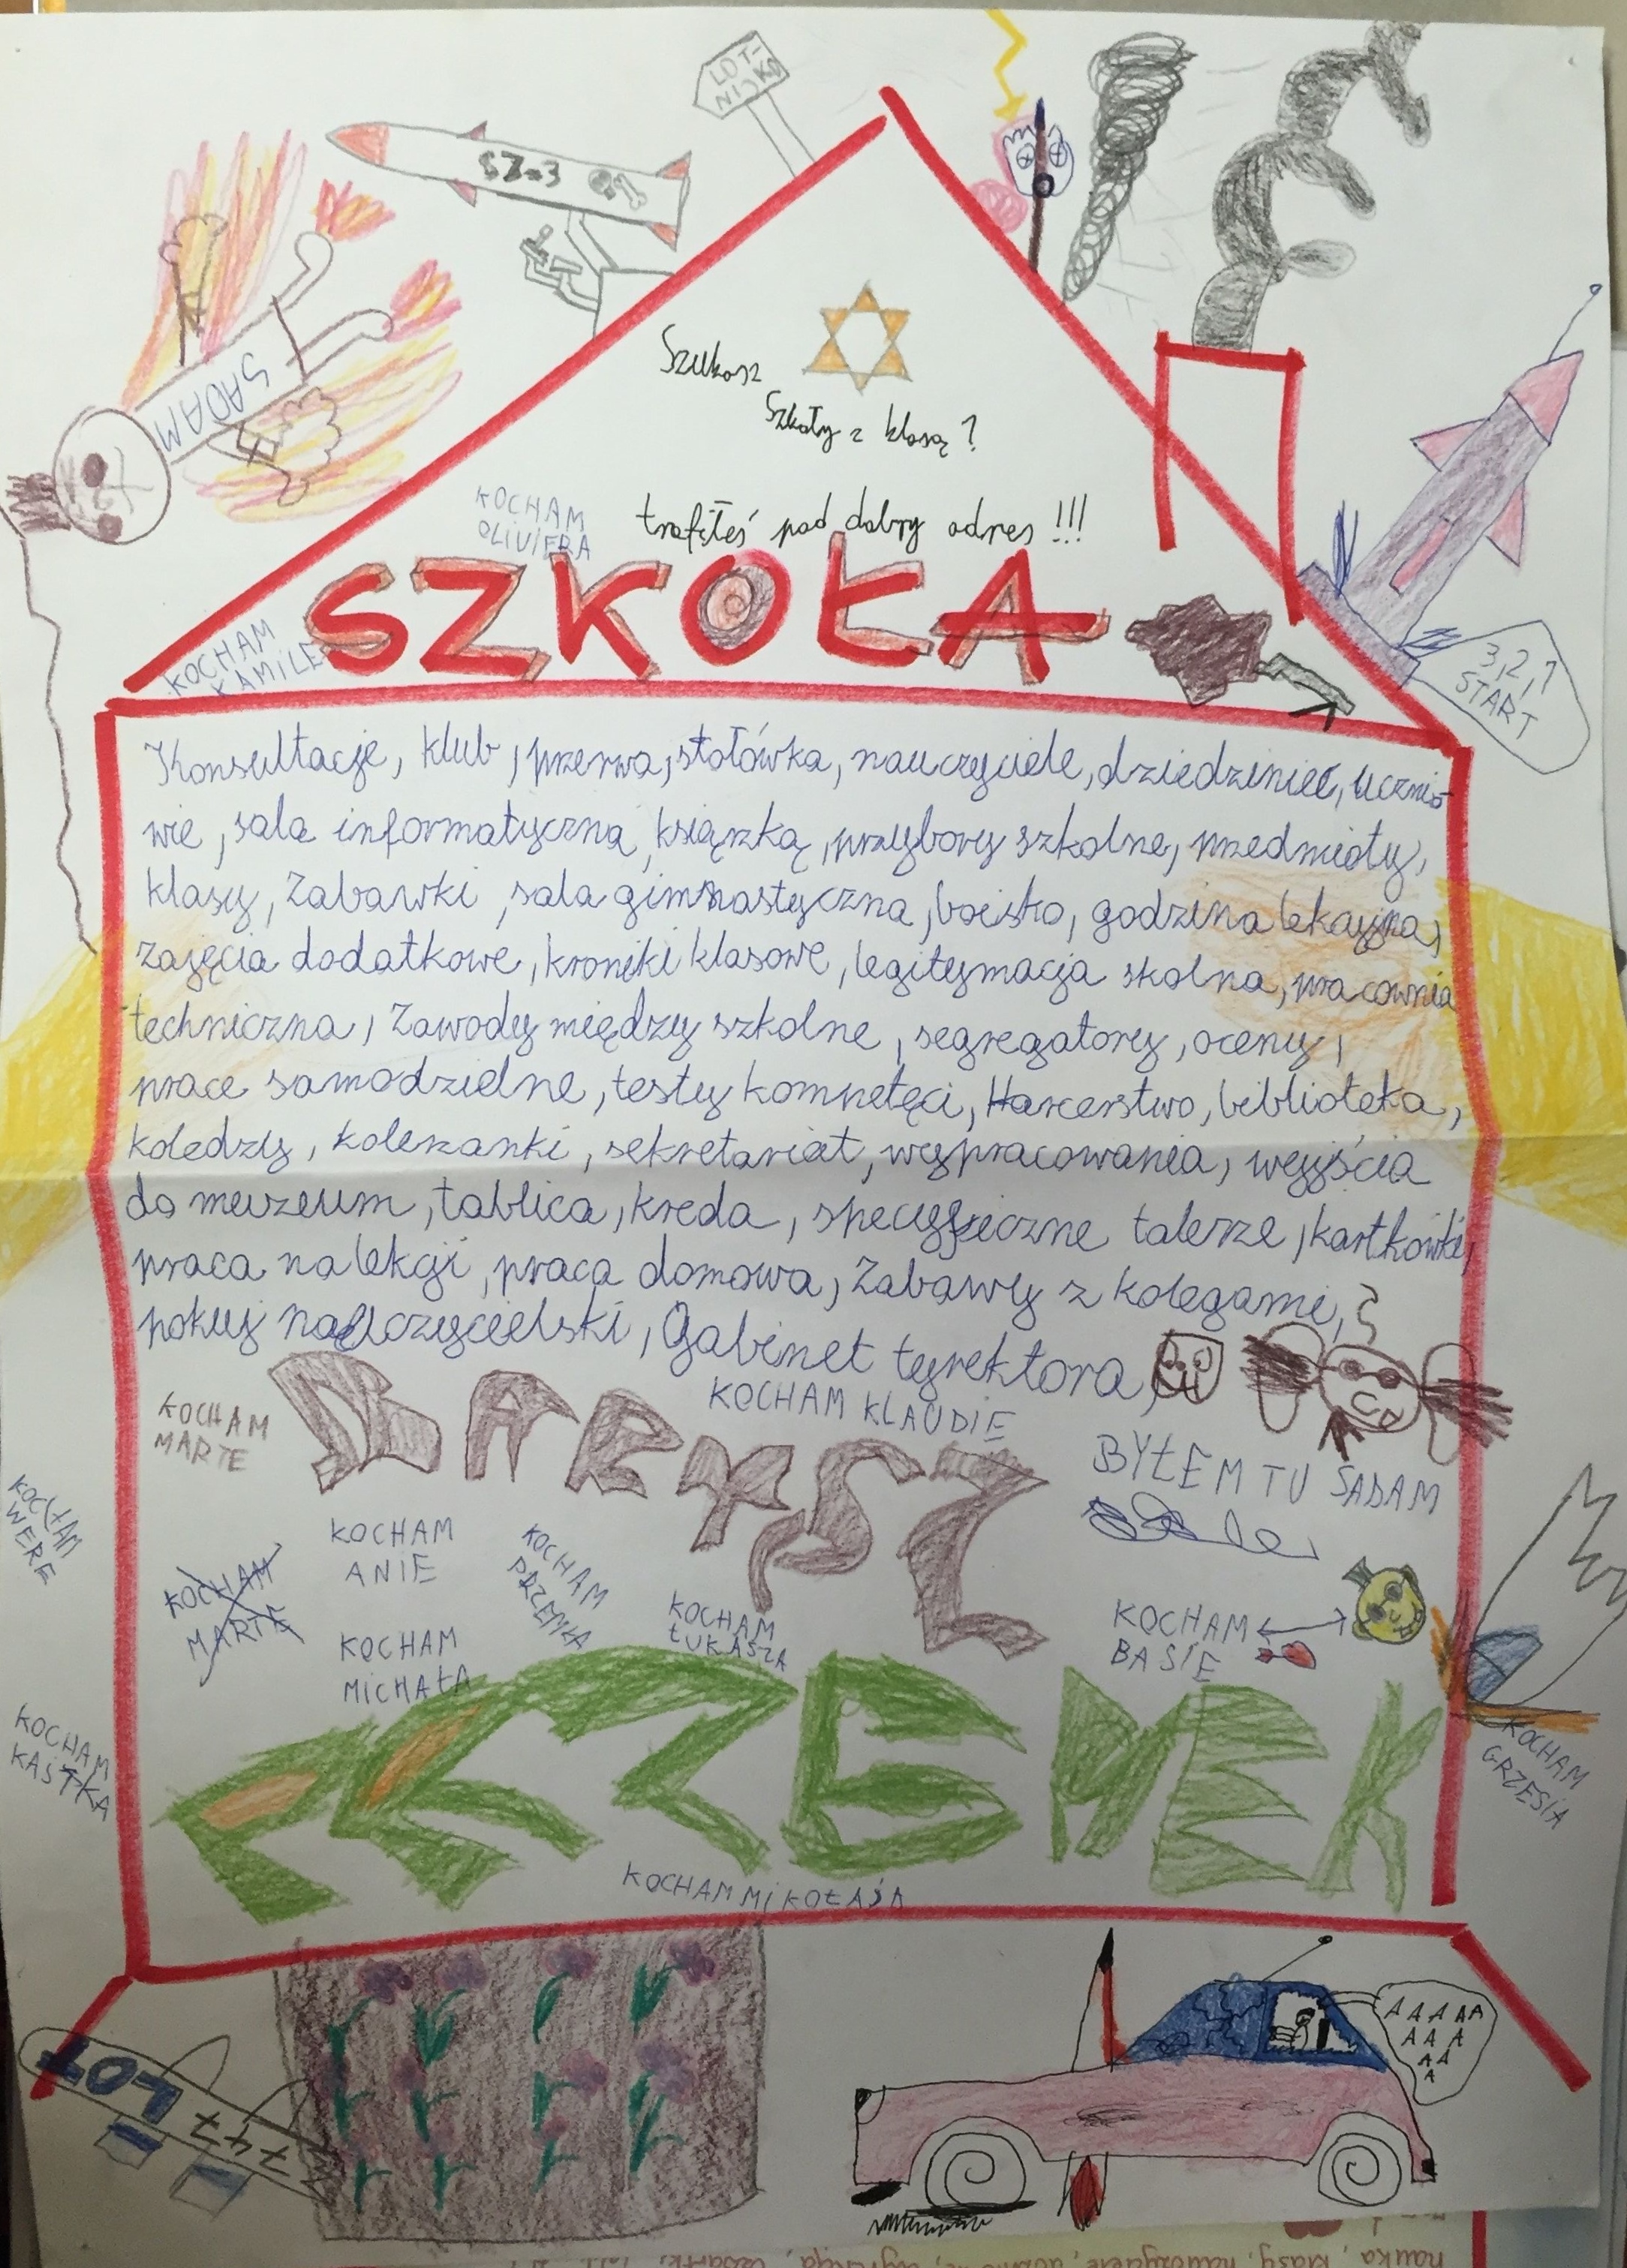 LOT-
NISKO
SZ-3
SADAM
Szukasz
Szkoły z klasą?
trafiłeś pod dobry adres!!!
KOCHAM
OLIVIERA
SZKOŁA
KOCHAM
KAMILE
3,2,1
START
Konsultacje, klub, przerwa, stołówka, nauczyciele, dziedziniec, Ucznio-
wie, sala informatyczną, książką, przybory szkolne, przedmioty,
klasy, Zabawki, sala gimnastyczna, boisko, godzina lekcyjna,
zajęcia dodatkowe, kroniki klasowe, legitymacja skolna, pracownia
techniczna, Zawody między szkolne, segregatory, oceny,
prace samodzielne, testy kompetęci, Harcerstwo, biblioteka,
koledzy, kolerzanki, sekretariat, wypracowania, wyjścia
do muzeum, tablica, kreda, specyficzne talerze, kartkówki,
praca na lekcji, praca domowa, Zabawy z kolegami,
pokuj nauczycielski, Gabinet tyrektora,
KOCHAM
MARTE
KOCHAM KLAUDIE
BYŁEM TU SADAM
KOCHAM
WERE
KOCHAM
MARTE
KOCHAM
ANIE
KOCHAM
PRZEMKA
KOCHAM
MICHAŁA
KOCHAM
ŁUKASZA
KOCHAM
BASIE
KOCHAM
KAŚTKA
KOCHAM
GRZESIA
KOCHAM MIKOŁAJA
LOT
747
AAAAA
AAA
AA
A